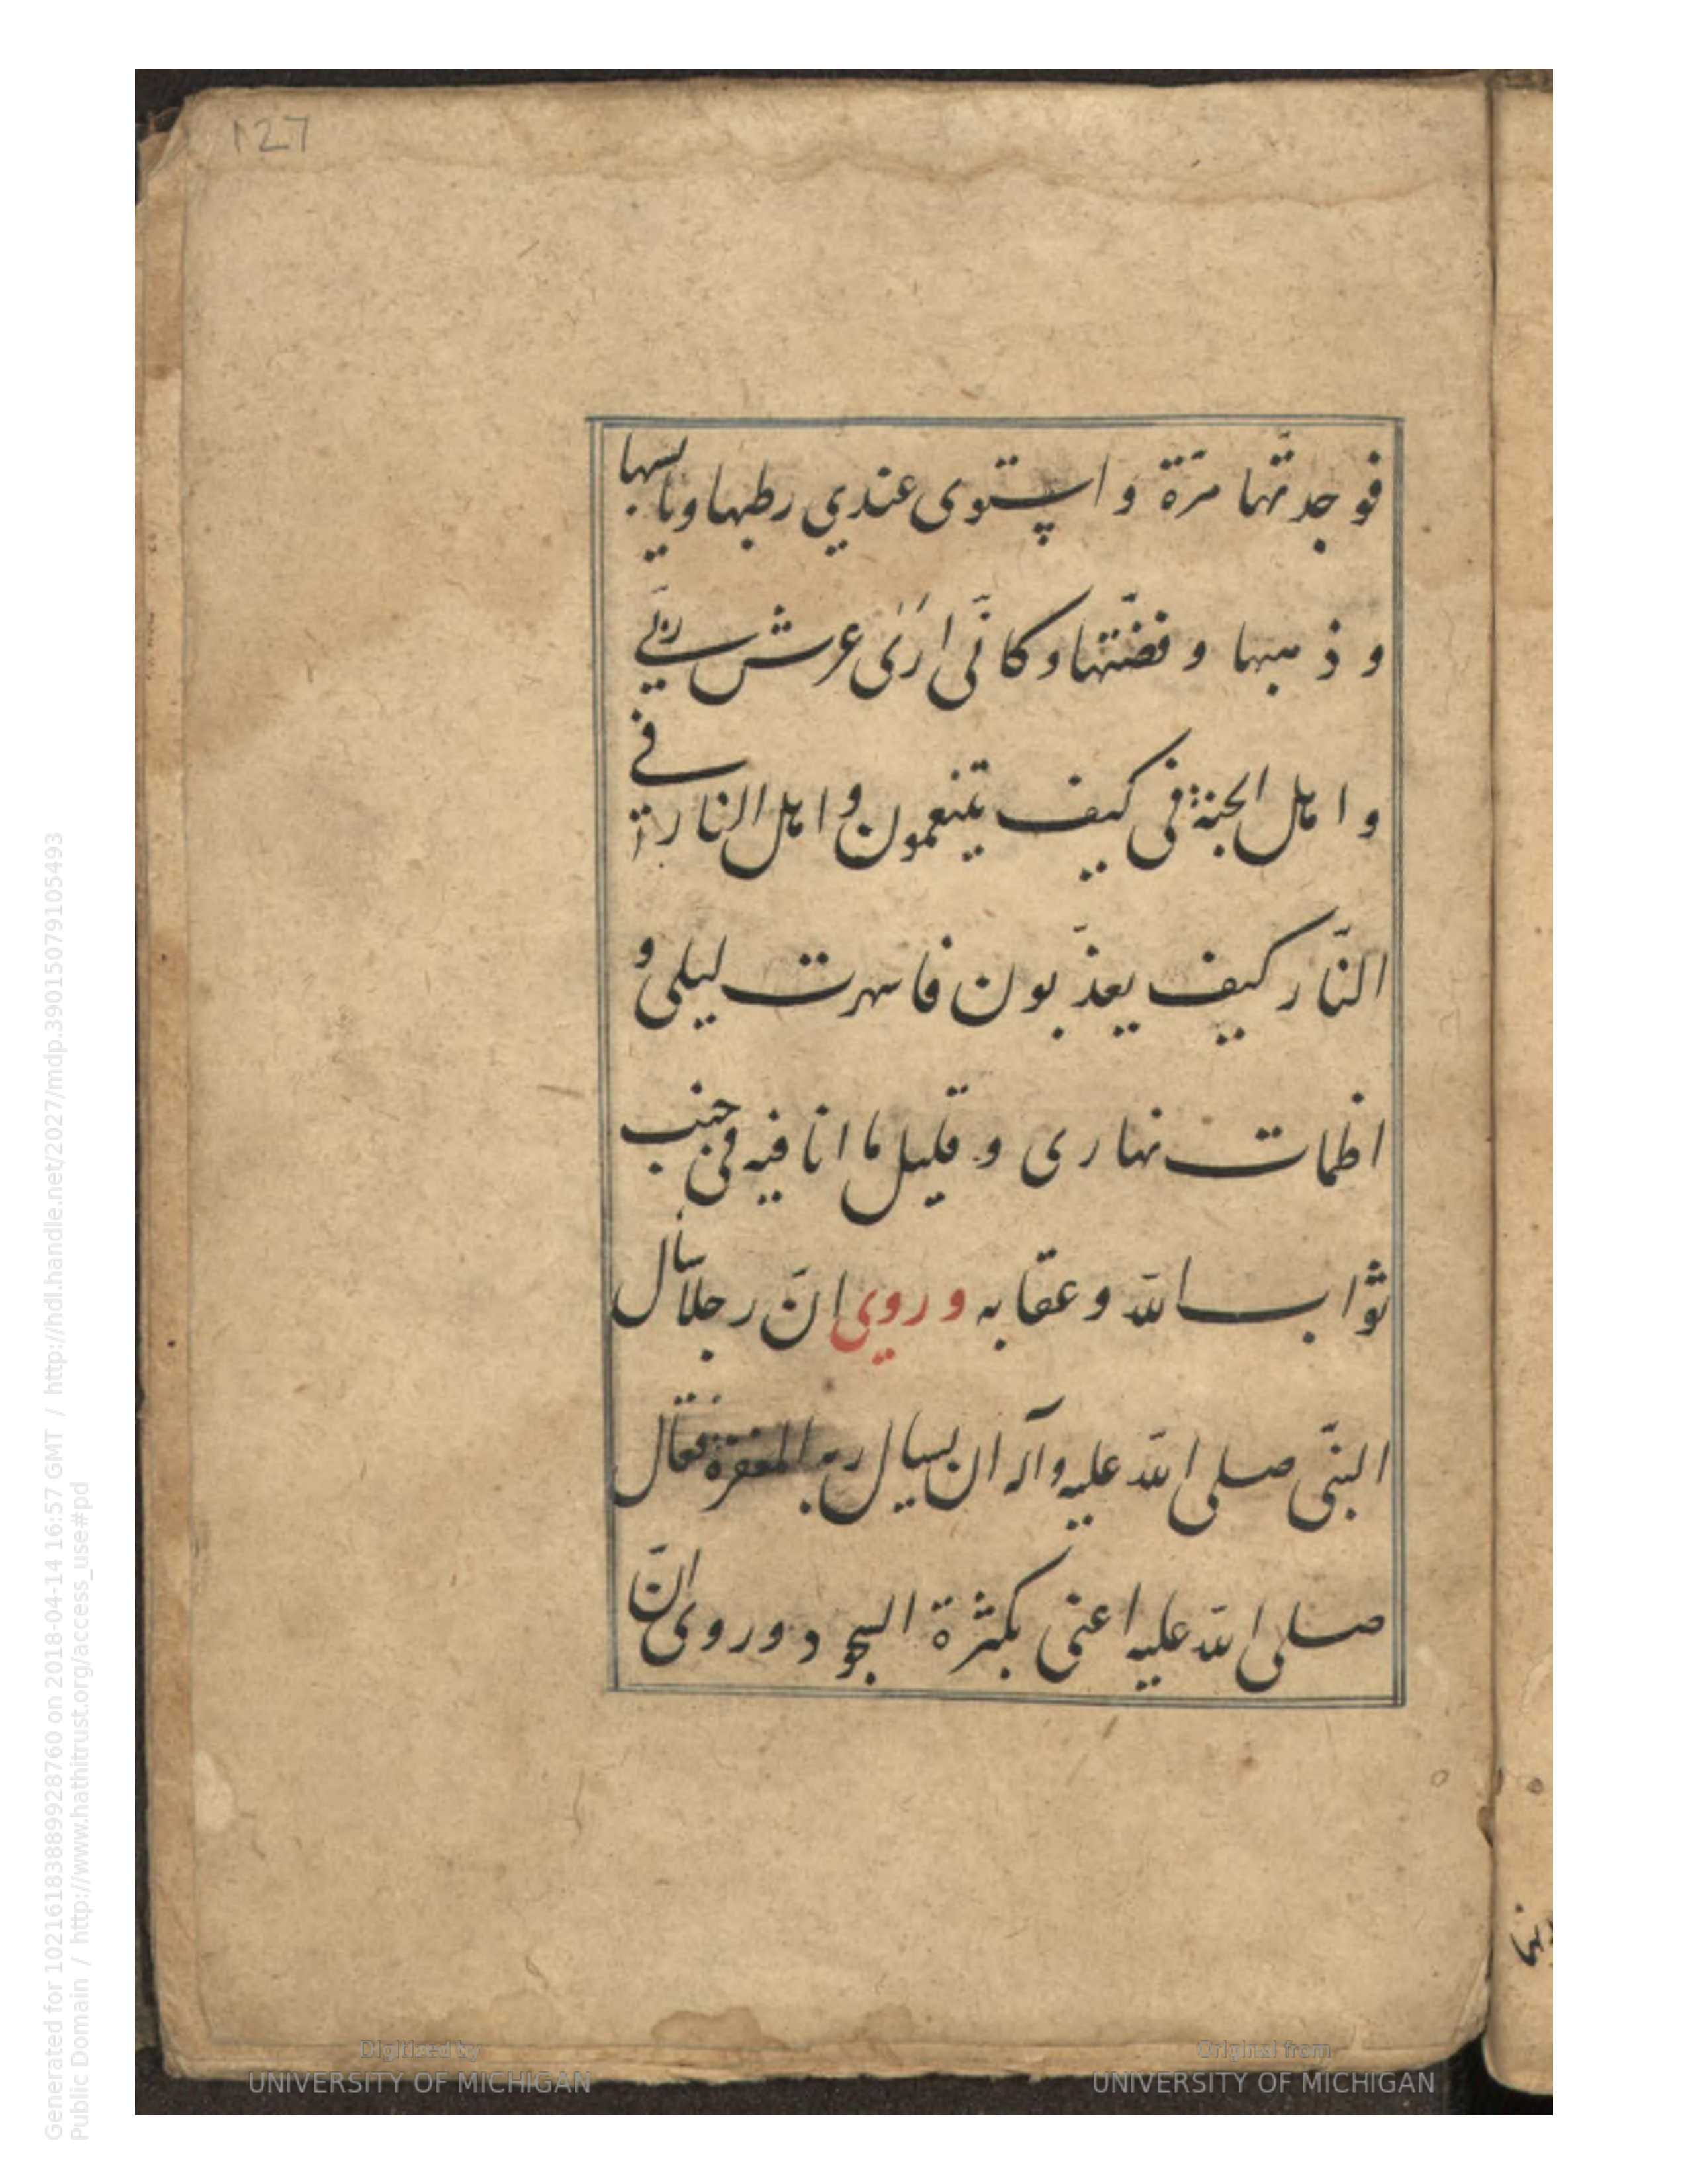 127
فوجدتّها مّرة و استوى عندي رطبها ويابسها
و ذهبها و فضّتها وكانّى ارى عرش ربّي
و اهل الجنة فى كيف يتنعمون و اهل النار في
النّار كيف يعذّبون فاسهرت ليلى و
اظمات نهارى و قليل ما انا فيه فى جنب
ثواب الله و عقابه وروي انّ رجلا سال
النبّى صلى الله عليه وآله ان يسال ربه المغفرة فقال
صلى الله عليه اعنى بكثرة السجود وروى انّ
Generated for 10216183889928760 on 2018-04-14 16:57 GMT / http://hdl.handle.net/2027/mdp.39015079105493
Public Domain / http://www.hathitrust.org/access_use#pd
Digitized by
UNIVERSITY OF MICHIGAN
Original from
UNIVERSITY OF MICHIGAN